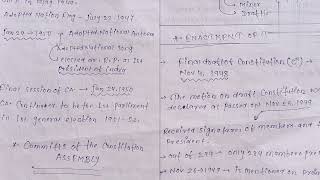 Adopted Nation Flag - July 22 1947
Jan 24 → 1950 → Adopted National Anthem
→ Adopted National song
elected Dr. R.P. as 1st
President of India
Final session of CA - Jan 24, 1950
CA - Continue to be the 1st Parliament
in 1st general election 1951-52.
* Committees of the Constitution
ASSEMBLY
→ Minor
→ Drafts
* ENACTMENT OF
Final draft of Constitution
Nov 4, 1948
The motion on draft Constitution
declared as passed on Nov 26, 1949
Received signatures of members and
President.
out of 299 → only 284 members
Nov 26 - 1949 → is mentioned on